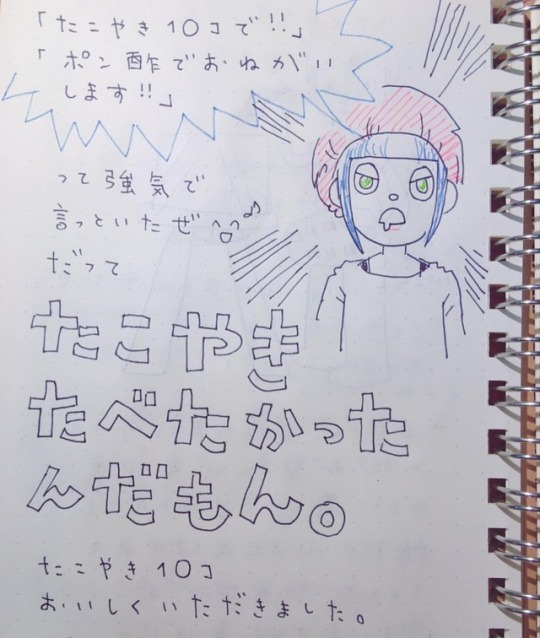 「たこやき10コで!!」
「ポン酢でおねがい
します!!」
って強気で
言っといたぜ♪
だって
たこやき
たべたかった
んだもん。
たこやき10コ
おいしくいただきました。